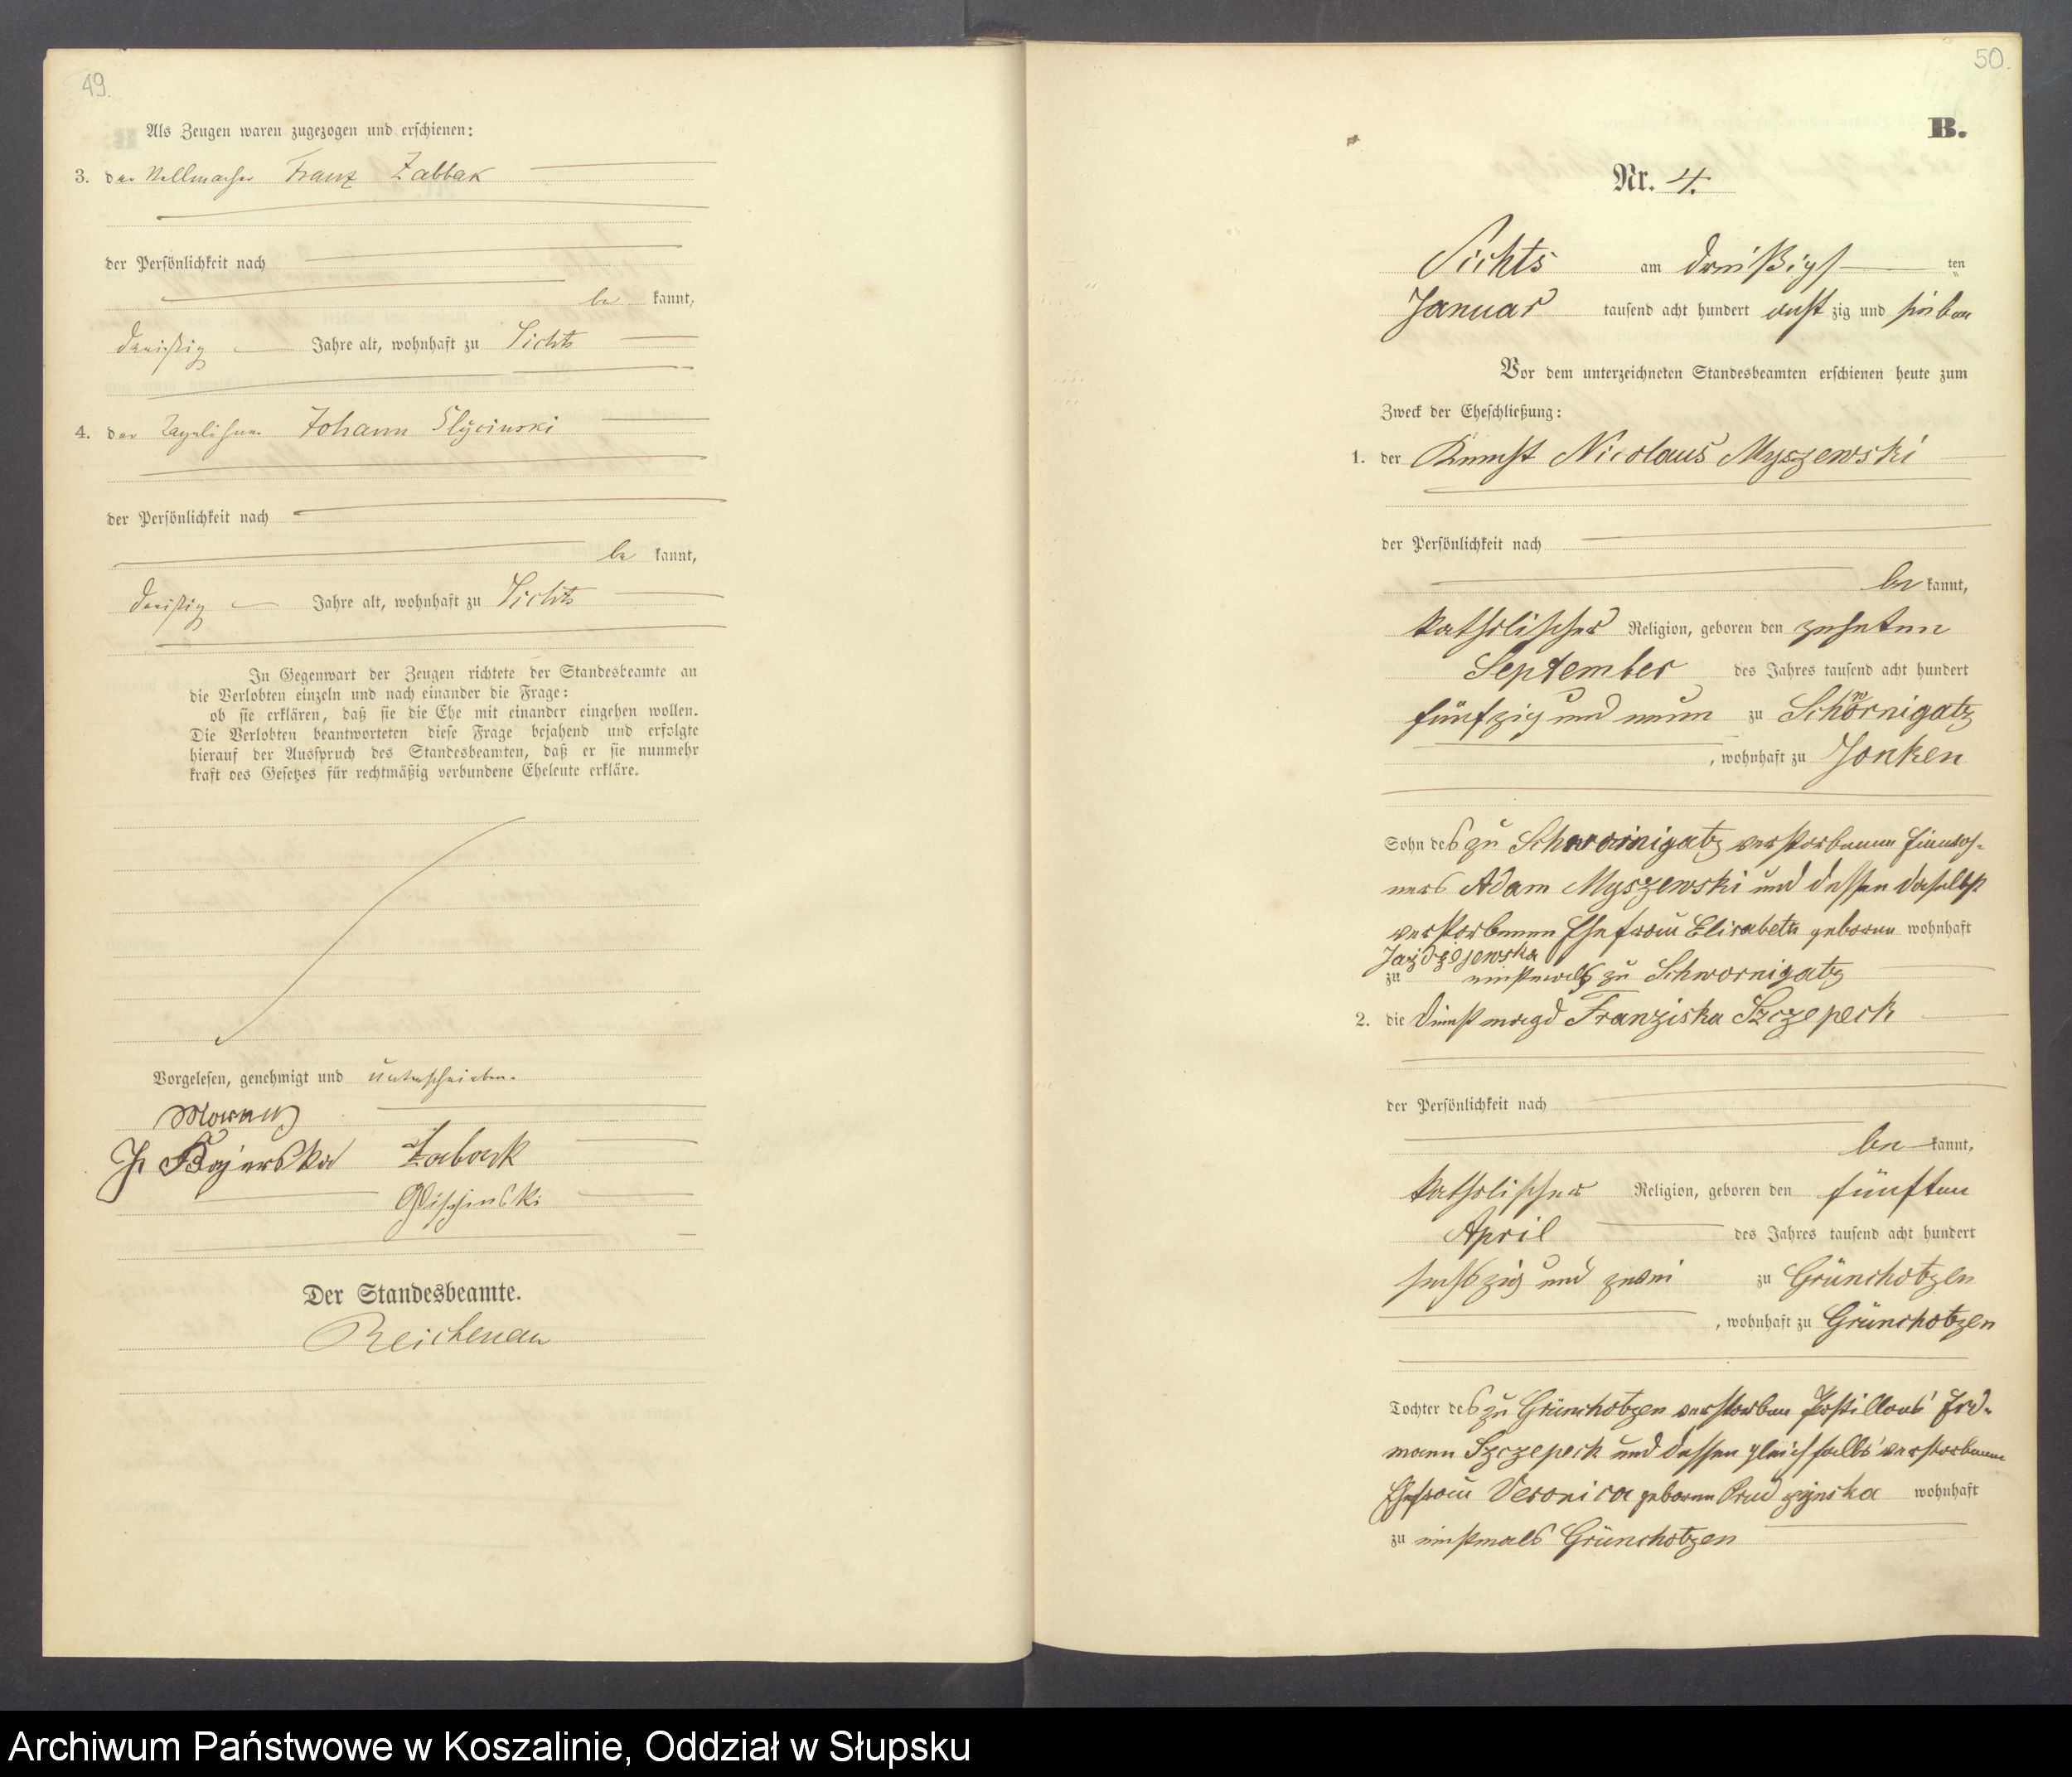 49.
Als Zeugen waren zugezogen und erschienen:
3. der Stellmacher Franz Zabbak
der Persönlichkeit nach
be kannt,
dreißig Jahre alt, wohnhaft zu Sichts
4. der Tagelöhner Johann Glycinski
der Persönlichkeit nach
be kannt,
dreißig Jahre alt, wohnhaft zu Sichts
In Gegenwart der Zeugen richtete der Standesbeamte an
die Verlobten einzeln und nach einander die Frage:
ob sie erklären, daß sie die Ehe mit einander eingehen wollen.
Die Verlobten beantworteten diese Frage bejahend und erfolgte
hierauf der Ausspruch des Standesbeamten, daß er sie nunmehr
kraft des Gesetzes für rechtmäßig verbundene Eheleute erkläre.
Vorgelesen, genehmigt und unterschrieben.
Zabark
Der Standesbeamte.
Reichenau
50.
B.
Nr. 4.
Sichts am dreißigst ten
Januar tausend acht hundert acht zig und sieben
Vor dem unterzeichneten Standesbeamten erschienen heute zum
Zweck der Eheschließung:
1. der Knecht Nicolaus Myszewski
der Persönlichkeit nach
be kannt,
katholischer Religion, geboren den zehnten
September des Jahres tausend acht hundert
fünfzig und neun zu Schwornigatz
, wohnhaft zu Jonken
Sohn des zu Schwornigatz verstorbenen Einwoh-
ners Adam Myszewski und dessen daselbst
verstorbenen Ehefrau Elisabeth geborene wohnhaft
Jazdzejewska
zu einstmals zu Schwornigatz
2. die Dienstmagd Franziska Szczepeck
der Persönlichkeit nach
be kannt,
katholischer Religion, geboren den fünften
April des Jahres tausend acht hundert
sechszig und zwei zu Grünchotzen
, wohnhaft zu Grünchotzen
Tochter des zu Grünchotzen verstorben Postillons Erd-
mann Szczepeck und dessen gleichfalls verstorbenen
Ehefrau Veronica geborene wohnhaft
zu einstmals Grünchotzen
Archiwum Państwowe w Koszalinie, Oddział w Słupsku